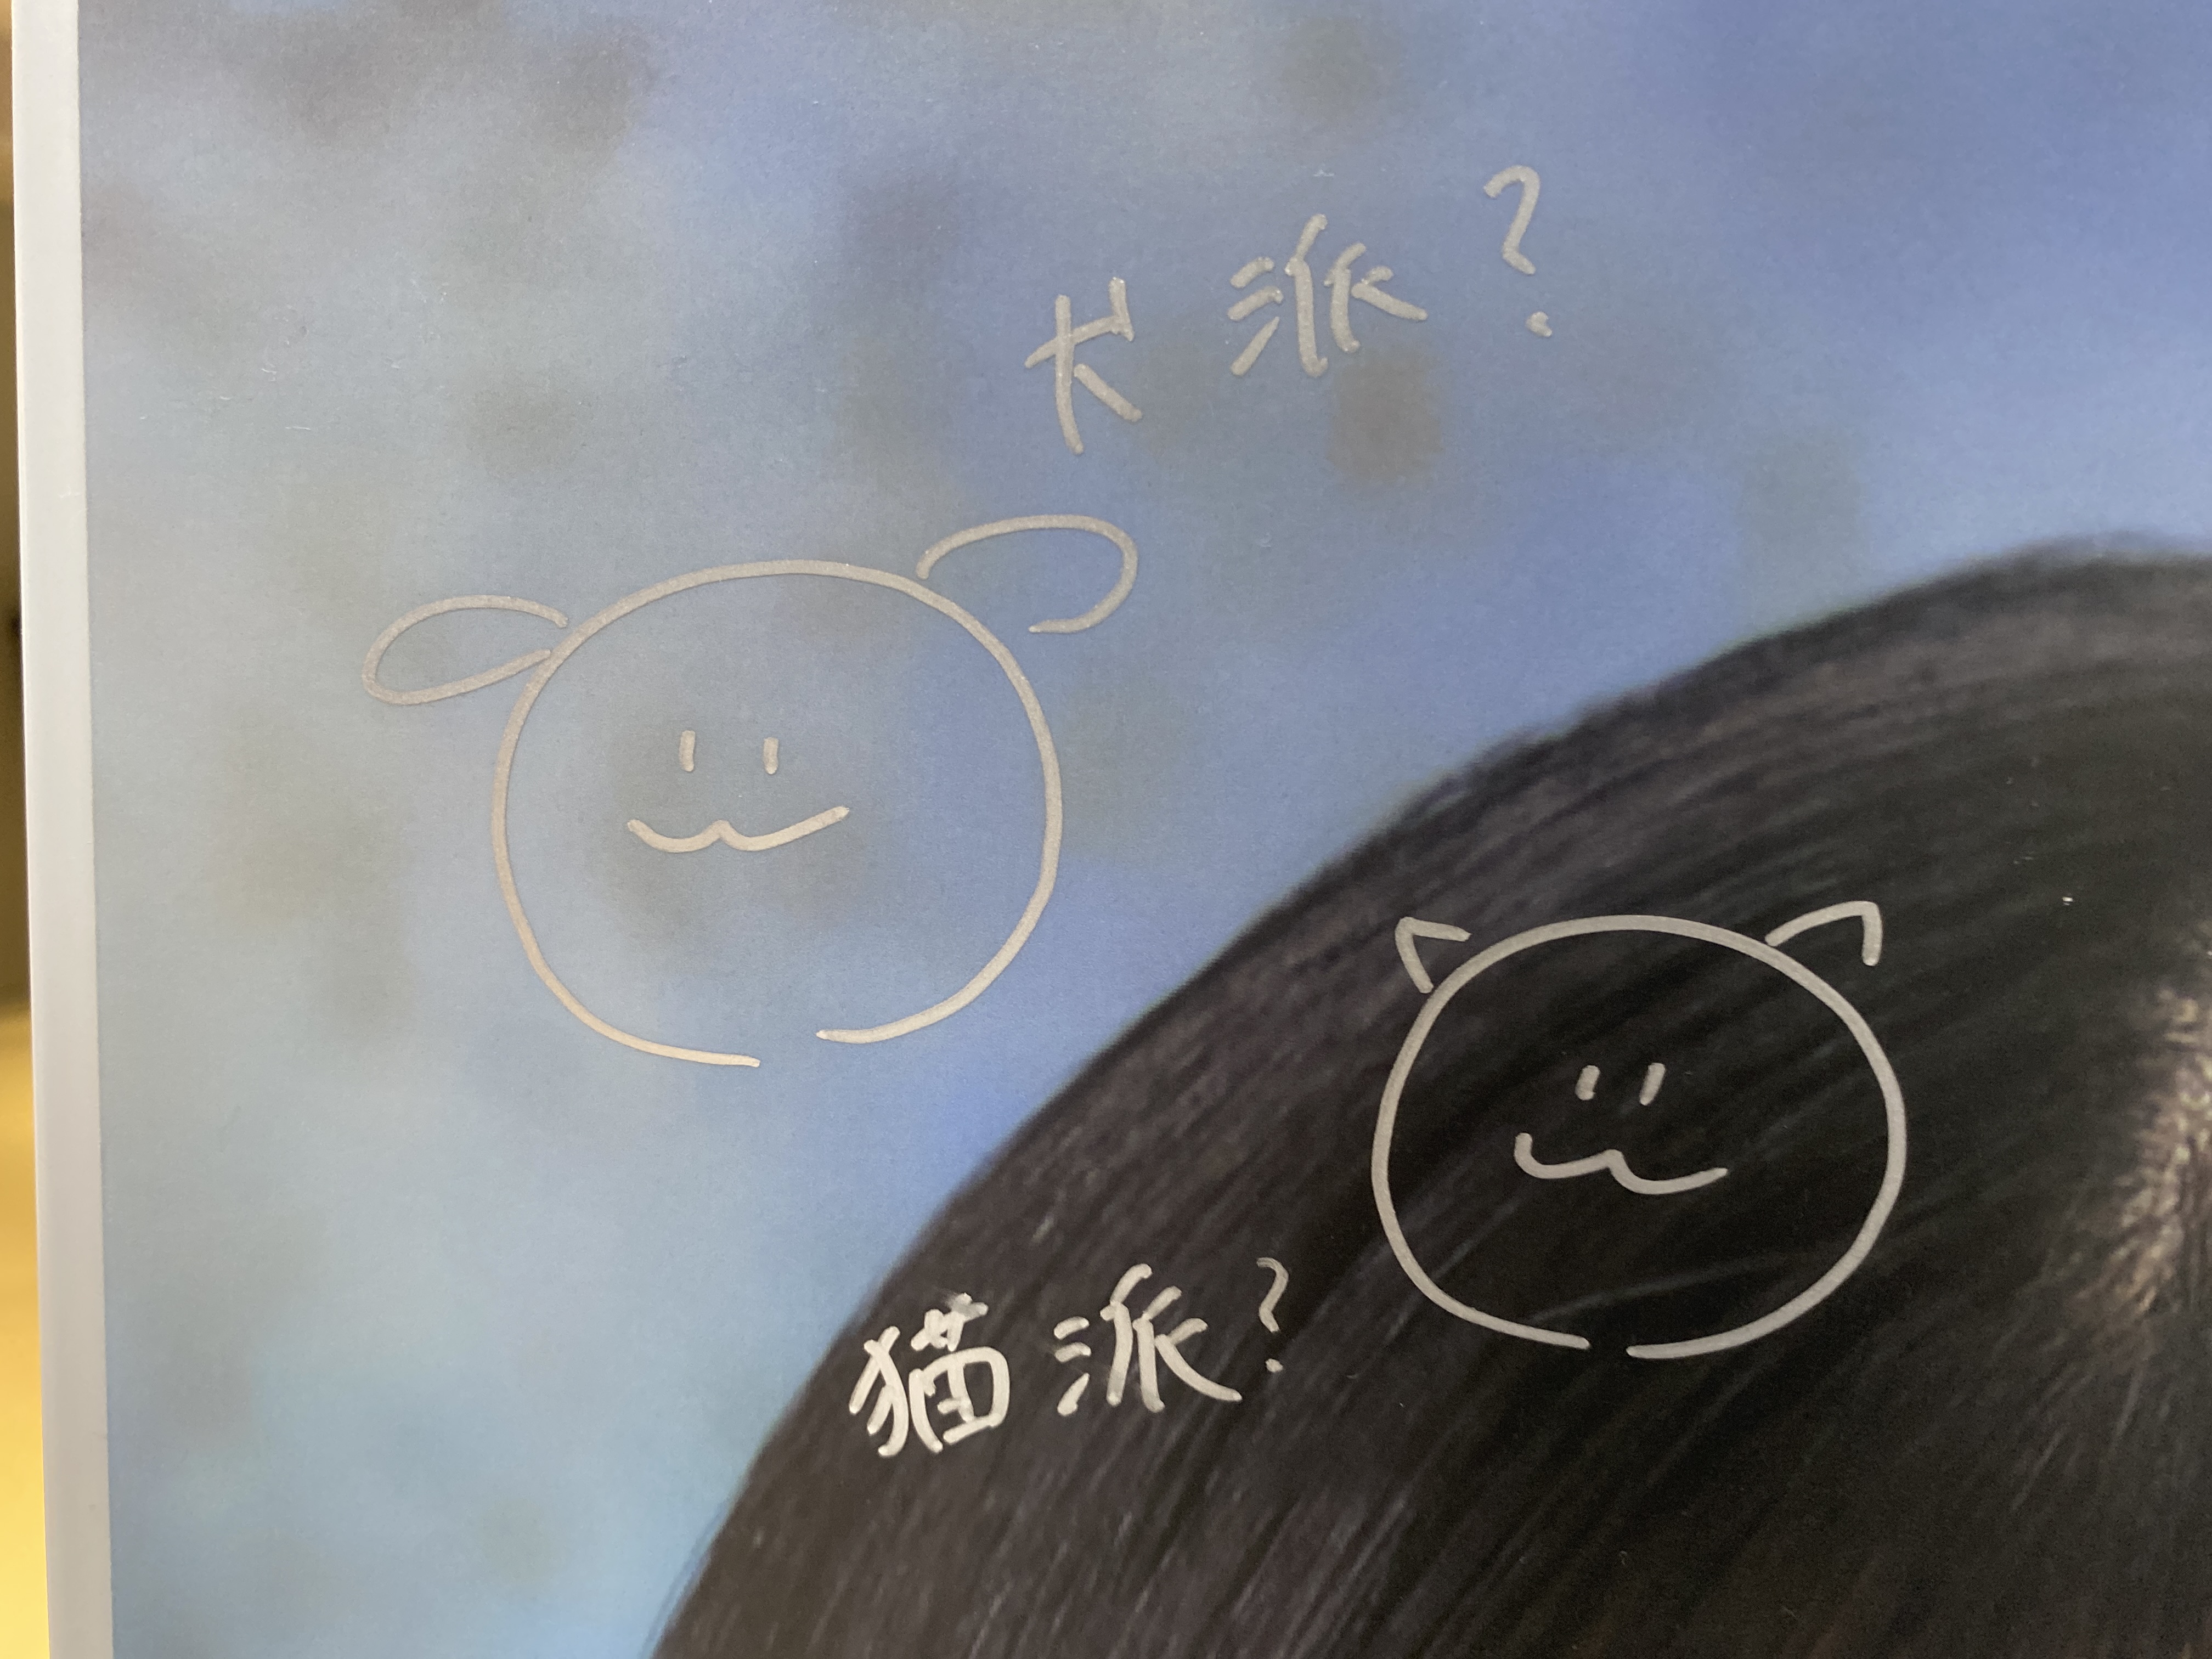 犬派?
猫派?